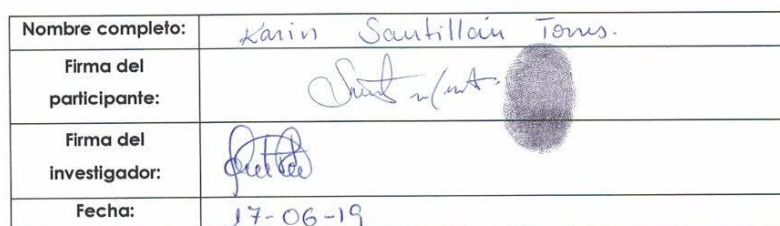 Nombre completo: Karin Santillán Torres.
Firma del
participante:
Firma del
investigador:
Fecha: 17-06-19